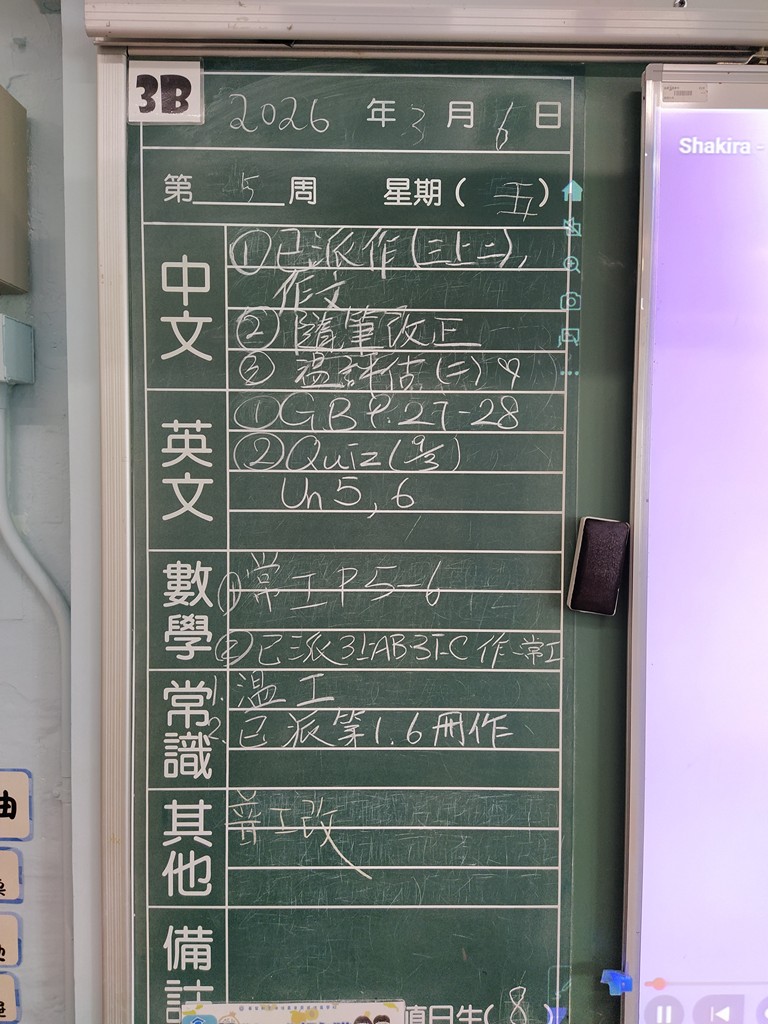 3B
2026 年 3 月 6 日
第 5 周 星期(五)
中文
①已派作(三上二),
作文
②隨筆改正
③溫評估(二)
英文
①G.B P.27-28
②Quiz(9/3)
Un 5, 6
數學
①常工 P5-6
②已派3上AB3下C作、常工
常識
1. 溫工
2. 已派第1.6冊作
其他
普工改
備註
值日生(8)
Shakira -